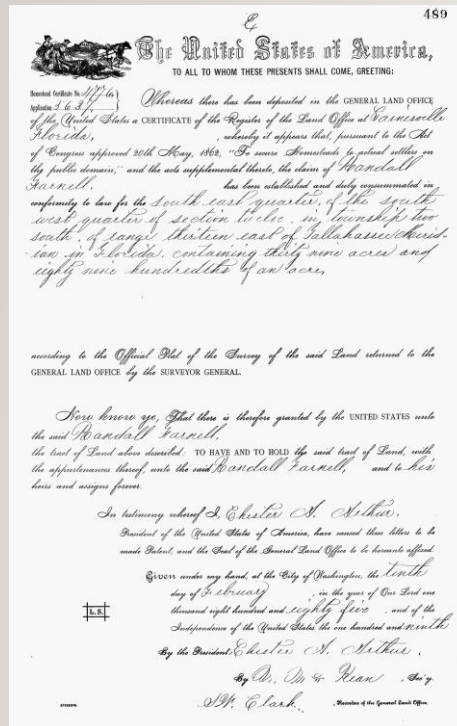 489
The United States of America,
TO ALL TO WHOM THESE PRESENTS SHALL COME, GREETING:
Homestead Certificate No. 4776
Application 8637
Whereas there has been deposited in the GENERAL LAND OFFICE
of the United States a CERTIFICATE of the Register of the Land Office at Gainesville
Florida, , whereby it appears that, pursuant to the Act
of Congress approved 20th May, 1862, "To secure Homesteads to actual settlers on
the public domain," and the acts supplemental thereto, the claim of Randall
Farnell. has been established and duly consummated in
conformity to law for the South east quarter, of the south
west quarter of section twelve, in township two
south, of range thirteen east of Tallahassee Merid-
ian in Florida, containing thirty nine acres and
eighty nine hundredths of an acre,
according to the Official Plat of the Survey of the said Land returned to the
GENERAL LAND OFFICE by the SURVEYOR GENERAL.
Now know ye, That there is therefore granted by the UNITED STATES unto
the said Randall Farnell,
the tract of Land above described: TO HAVE AND TO HOLD the said tract of Land, with
the appurtenances thereof, unto the said Randall Farnell, and to his
heirs and assigns forever.
In testimony whereof I, Chester A. Arthur,
President of the United States of America, have caused these letters to be
made Patent, and the Seal of the General Land Office to be hereunto affixed.
Given under my hand, at the City of Washington, the tenth
day of February , in the year of Our Lord one
thousand eight hundred and eighty five , and of the
Independence of the United States the one hundred and ninth
L. S.
By the President: Chester A. Arthur.
By Wm. H. Kean , Sec'y.
S. W. Clark , Recorder of the General Land Office.